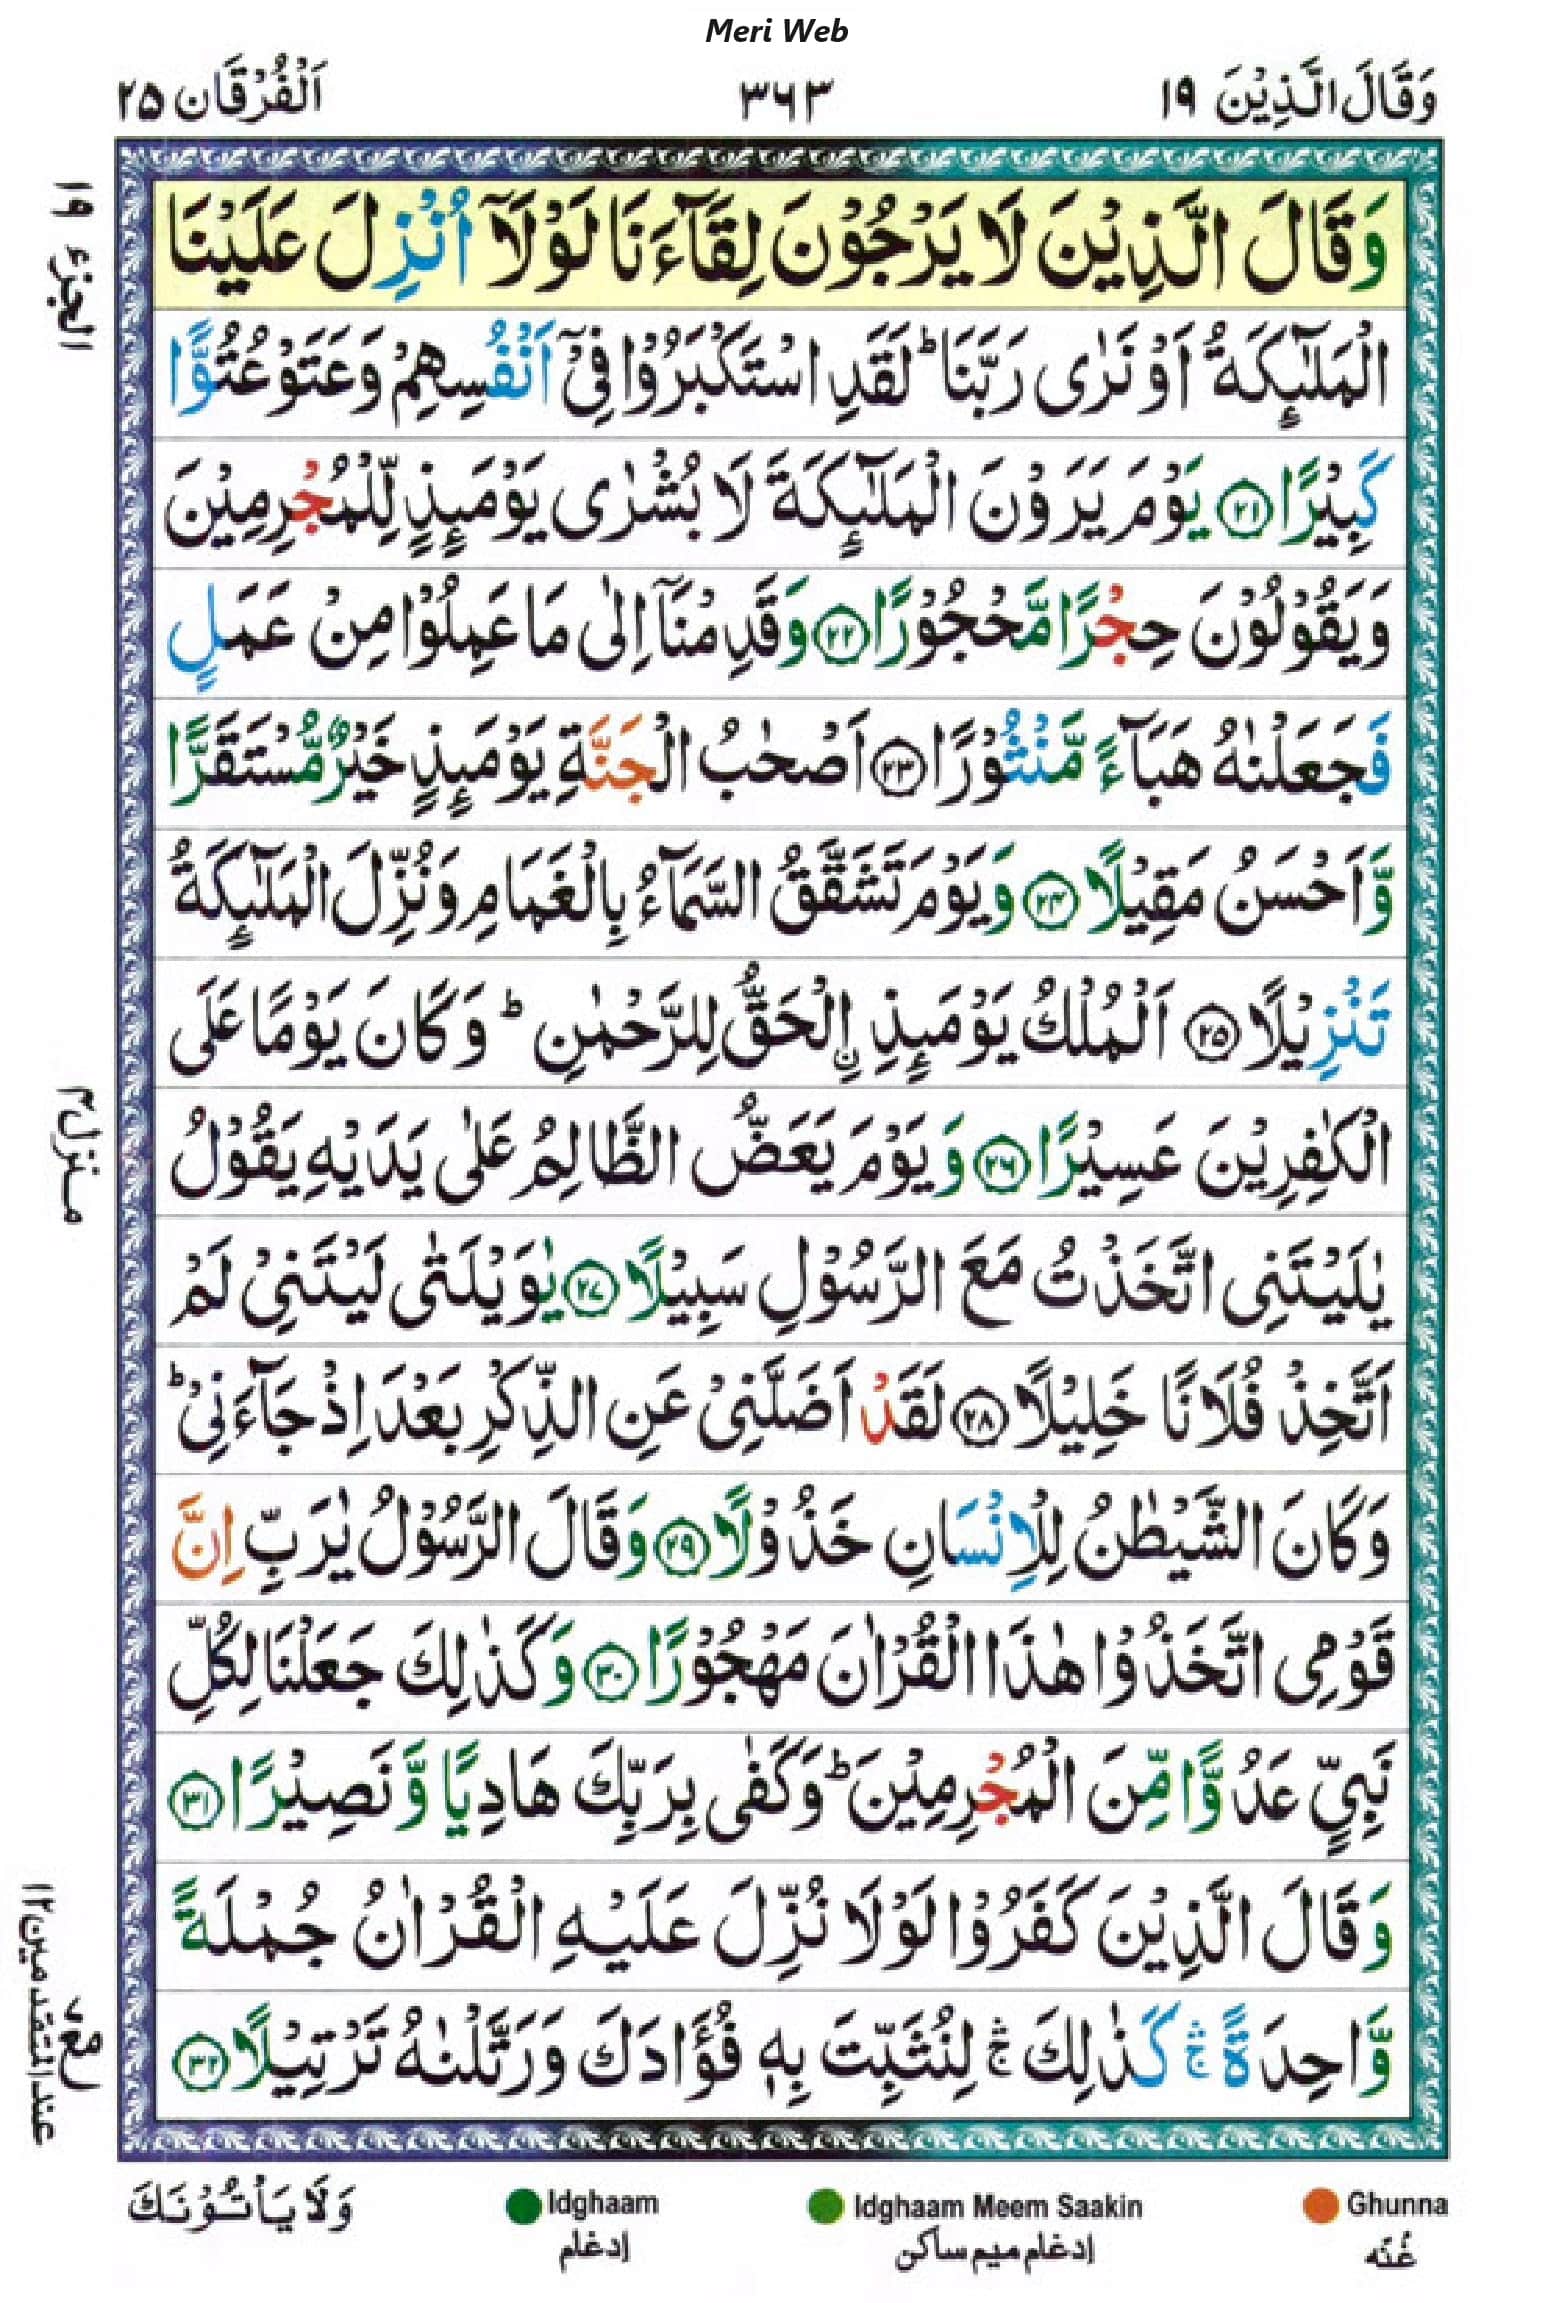 Meri Web
وَقَالَ الَّذِيْنَ ١٩
٣٦٣
اَلْفُرْقَان ٢٥
وَقَالَ الَّذِيْنَ لَا يَرْجُوْنَ لِقَآءَنَا لَوْلَاۤ اُنْزِلَ عَلَيْنَا
الْمَلٰٓئِكَةُ اَوْ نَرٰى رَبَّنَا ؕ لَقَدِ اسْتَكْبَرُوْا فِيْۤ اَنْفُسِهِمْ وَعَتَوْ عُتُوًّا
كَبِيْرًا ﴿٢١﴾ يَوْمَ يَرَوْنَ الْمَلٰٓئِكَةَ لَا بُشْرٰى يَوْمَئِذٍ لِّلْمُجْرِمِيْنَ
وَيَقُوْلُوْنَ حِجْرًا مَّحْجُوْرًا ﴿٢٢﴾ وَقَدِمْنَاۤ اِلٰى مَا عَمِلُوْا مِنْ عَمَلٍ
فَجَعَلْنٰهُ هَبَآءً مَّنْثُوْرًا ﴿٢٣﴾ اَصْحٰبُ الْجَنَّةِ يَوْمَئِذٍ خَيْرٌ مُّسْتَقَرًّا
وَّاَحْسَنُ مَقِيْلًا ﴿٢٤﴾ وَيَوْمَ تَشَقَّقُ السَّمَآءُ بِالْغَمَامِ وَنُزِّلَ الْمَلٰٓئِكَةُ
تَنْزِيْلًا ﴿٢٥﴾ اَلْمُلْكُ يَوْمَئِذِ ِۨالْحَقُّ لِلرَّحْمٰنِ ؕ وَكَانَ يَوْمًا عَلَى
الْكٰفِرِيْنَ عَسِيْرًا ﴿٢٦﴾ وَيَوْمَ يَعَضُّ الظَّالِمُ عَلٰى يَدَيْهِ يَقُوْلُ
يٰلَيْتَنِى اتَّخَذْتُ مَعَ الرَّسُوْلِ سَبِيْلًا ﴿٢٧﴾ يٰوَيْلَتٰى لَيْتَنِيْ لَمْ
اَتَّخِذْ فُلَانًا خَلِيْلًا ﴿٢٨﴾ لَقَدْ اَضَلَّنِيْ عَنِ الذِّكْرِ بَعْدَ اِذْ جَآءَنِيْ ؕ
وَكَانَ الشَّيْطٰنُ لِلْاِنْسَانِ خَذُوْلًا ﴿٢٩﴾ وَقَالَ الرَّسُوْلُ يٰرَبِّ اِنَّ
قَوْمِى اتَّخَذُوْا هٰذَا الْقُرْاٰنَ مَهْجُوْرًا ﴿٣٠﴾ وَكَذٰلِكَ جَعَلْنَا لِكُلِّ
نَبِيٍّ عَدُوًّا مِّنَ الْمُجْرِمِيْنَ ؕ وَكَفٰى بِرَبِّكَ هَادِيًا وَّنَصِيْرًا ﴿٣١﴾
وَقَالَ الَّذِيْنَ كَفَرُوْا لَوْلَا نُزِّلَ عَلَيْهِ الْقُرْاٰنُ جُمْلَةً
وَّاحِدَةً ۚ كَذٰلِكَ ۚ لِنُثَبِّتَ بِهٖ فُؤَادَكَ وَرَتَّلْنٰهُ تَرْتِيْلًا ﴿٣٢﴾
الجزء ١٩
منزل ٤
ع
عند المتقدمين ١٢
وَلَا يَاْتُوْنَكَ
Idghaam
إدغام
Idghaam Meem Saakin
إدغام ميم ساكن
Ghunna
غُنّه